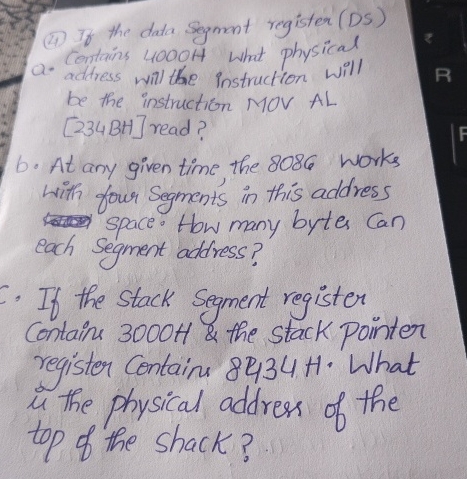 ④ If the data Segment register (DS)
Contains 4000H what physical
a. address will the instruction will
be the instruction MOV AL
[234BH] read?
b. At any given time, the 8086 works
with four Segments in this address
space. How many bytes can
each Segment address?
C. If the Stack Segment register
Contains 3000H & the Stack Pointer
register Contains 8434H. What
is the physical address of the
top of the shack?
R
F